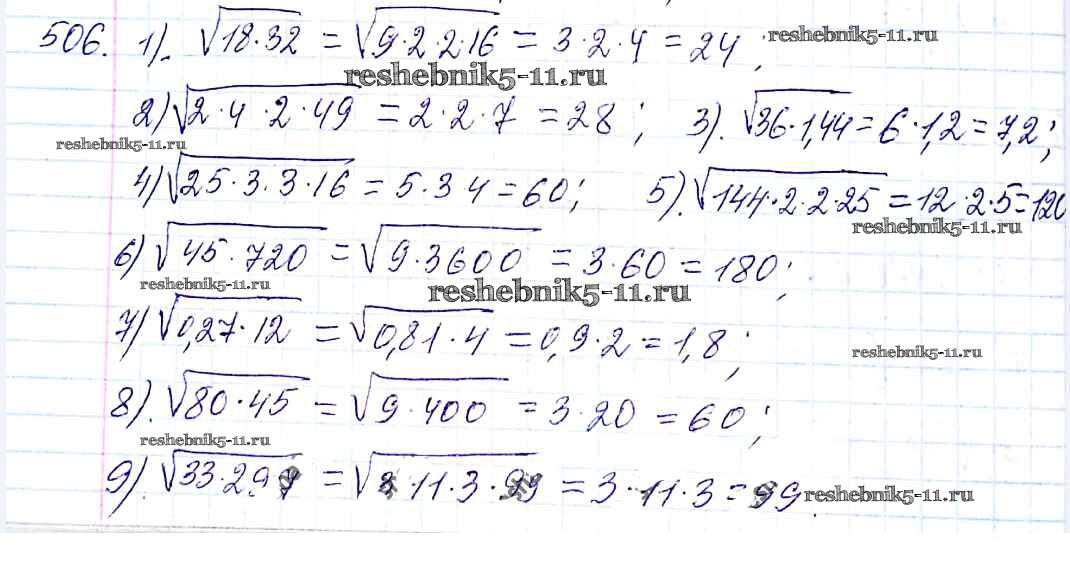 506. 1). √18·32 = √9·2·2·16 = 3·2·4 = 24, reshebnik5-11.ru
reshebnik5-11.ru
2) √2·4·2·49 = 2·2·7 = 28; 3). √36·1,44 = 6·1,2 = 7,2;
reshebnik5-11.ru
4) √25·3·3·16 = 5·3 4 = 60; 5). √144·2·2·25 = 12·2·5 = 120
reshebnik5-11.ru
6) √45·720 = √9·3600 = 3·60 = 180;
reshebnik5-11.ru reshebnik5-11.ru
7) √0,27·12 = √0,81·4 = 0,9·2 = 1,8;
reshebnik5-11.ru
8). √80·45 = √9·400 = 3·20 = 60;
reshebnik5-11.ru
9). √33·297 = √ ·11·3· = 3·11·3 = 99 reshebnik5-11.ru